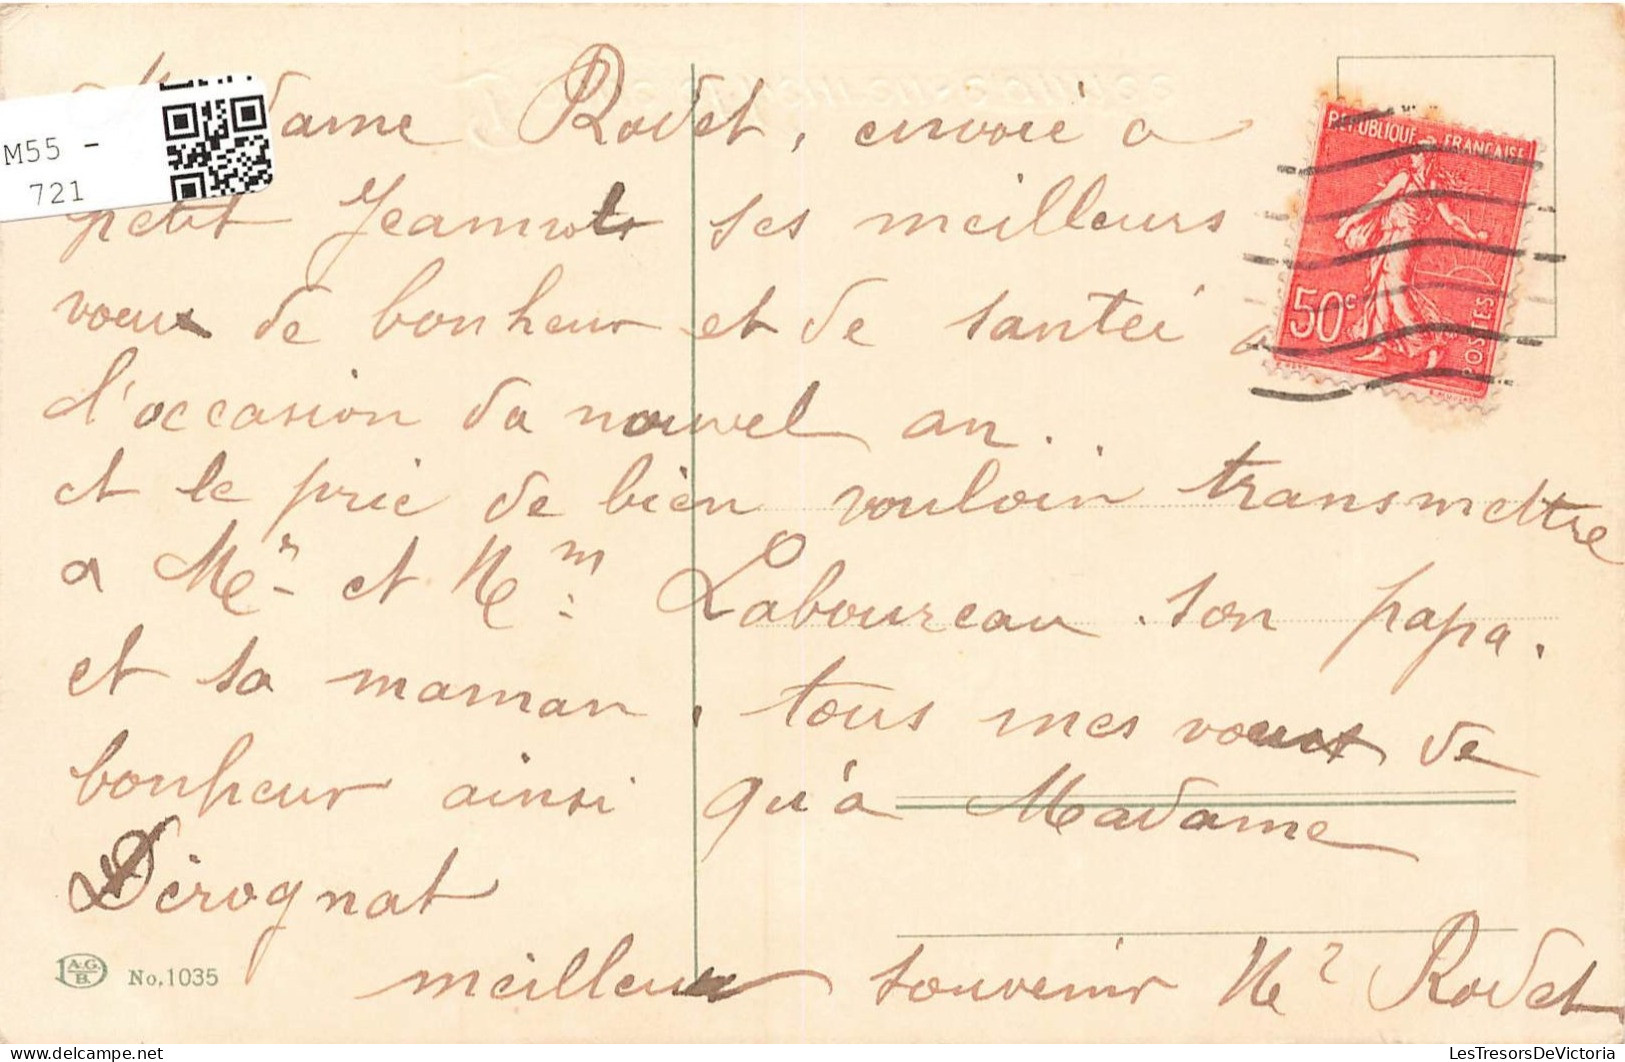 Madame Rodet, envoie a
petit Jeannot ses meilleurs
voeux de bonheur et de santéé a
l'occasion da nouvel an..
et le prie de bien vouloir transmettre
a Mr et Mm Laboureau son papa.
et sa maman, tous mes voeux de
bonheur ainsi qu'à Madame
Dérognat
meilleur souvenir Mr Rodet
M55 -
721
REPUBLIQUE FRANÇAISE
50c
POSTES
A.G.
B.
No. 1035
LesTresorsDeVictoria.com